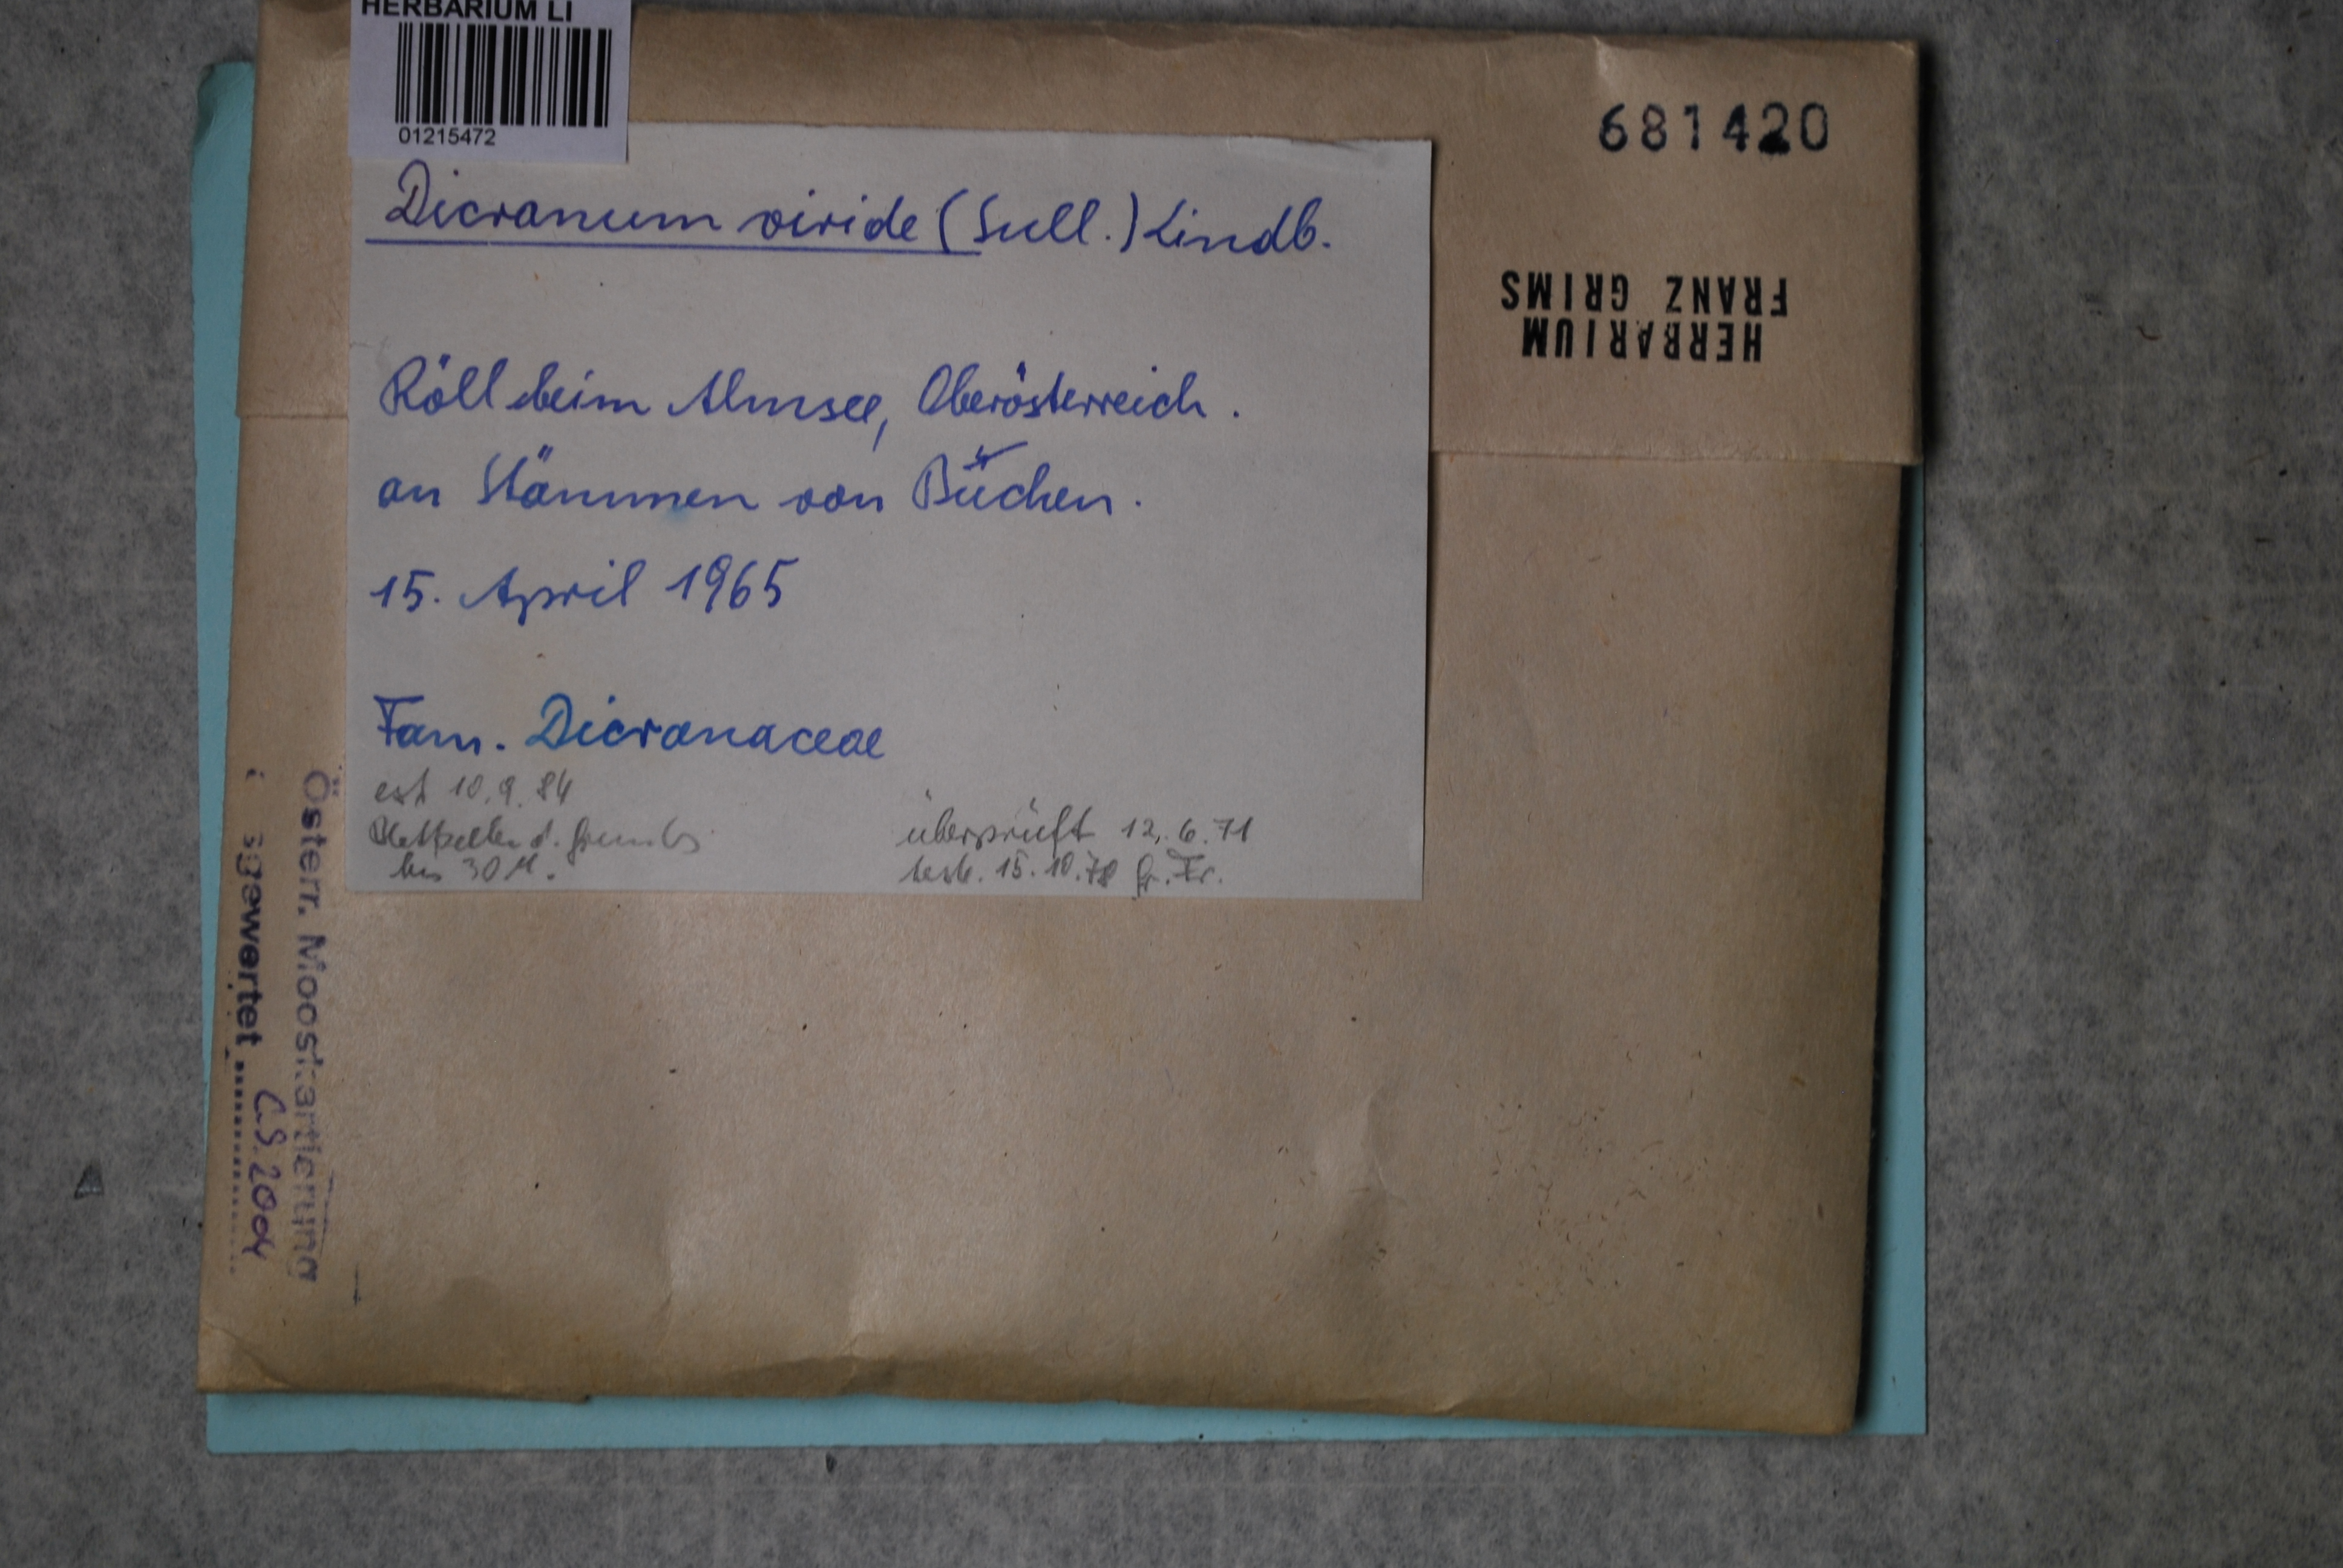 HERBARIUM LI
01215472
681420
HERBARIUM
FRANZ GRIMS
Dicranum viride (Sull.) Lindb.
Röll beim Almsee, Oberösterreich.
an Stämmen von Buchen.
15. April 1965
Fam. Dicranaceae
est 10.9.84
bis 30 µ.
überprüft 12.6.71
test. 15.10.78 Gr. Fr.
Österr. Mooskartierung
sgewertet
C.S. 2004